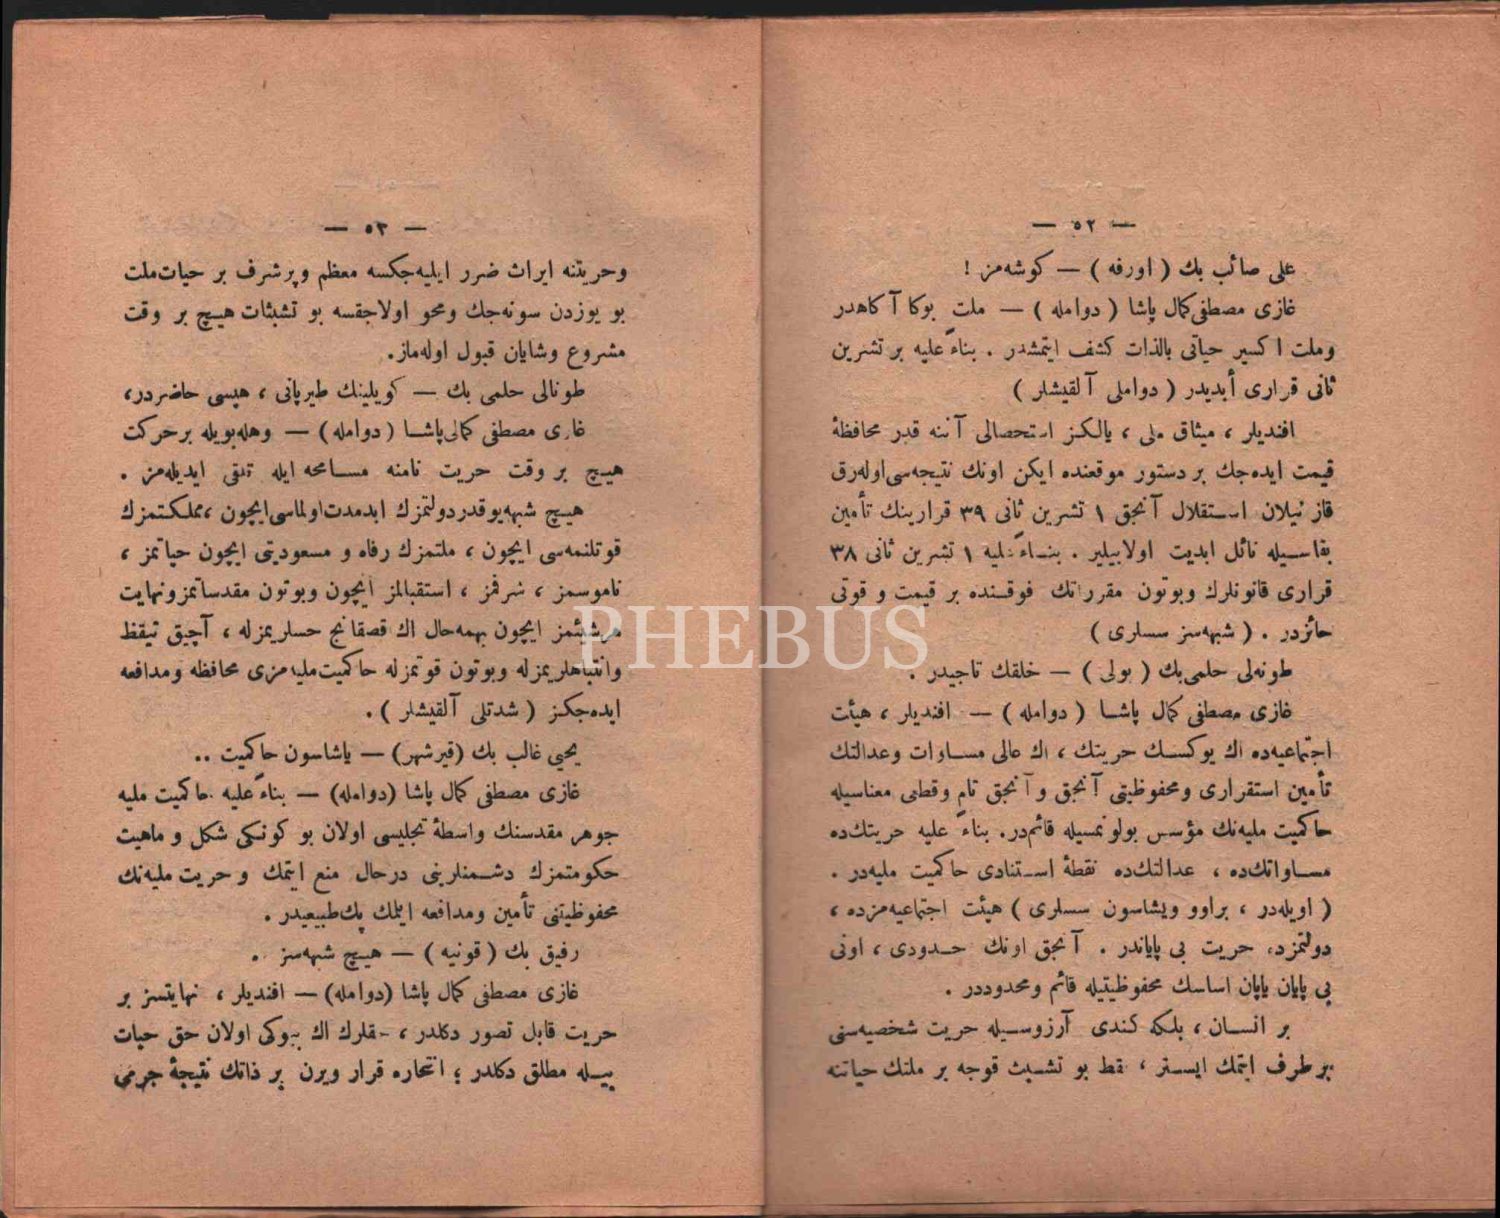 — ٥٢ —
علی صائب بك ( اورفه ) — كوشه‌مز !
غازی مصطفی كمال پاشا ( دوامله ) — ملت بوكا آ كاهدر
وملت ا كسیر حیاتی بالذات كشف ایتمشدر . بناءً علیه بر تشرین
ثانی قراری أبدیدر ( دواملی آ لقیشلر )
افندیلر ، میثاق ملی ، یالكز استحصالی آننه قدر محافظهٔ
قیمت ایده‌جك بر دستور موقعنده ایكن اونك نتیجه‌سی اوله‌رق
قازنیلان استقلال آنجق ١ تشرین ثانی ٣٩ قرارینك تأمین
بقاسیله نائل ابدیت اولابیلیر . بناءً علیه ١ تشرین ثانی ٣٨
قراری قانونلرك وبوتون مقرراتك فوقنده بر قیمت و قوتی
حائزدر . ( شبهه‌سز سسلری )
طونه‌لی حلمی‌بك ( بولی ) — خلقك تاجیدر .
غازی مصطفی كمال پاشا ( دوامله ) — افندیلر ، هیئت
اجتماعیه‌ده اك یوكسك حریتك ، اك عالی مساوات وعدالتك
تأمین استقراری ومحفوظیتی آنجق وآنجق تام وقطعی معناسیله
حاكمیت ملیه‌نك مؤسس بولونمسیله قائم‌در. بناءً علیه حریتك‌ده
مساواتك‌ده ، عدالتك‌ده نقطهٔ استنادی حاكمیت ملیه‌در .
( اویله‌در ، براوو ویشاسون سسلری ) هیئت اجتماعیه‌مزده ،
دولتمزده حریت بی پایاندر . آنجق اونك حدودی ، اونی
بی پایان یاپان اساسك محفوظیتیله قائم ومحدوددر .
بر انسان ، بلكه كندی آرزوسیله حریت شخصیه‌سنی
برطرف ایتمك ایستر ، فقط بو تشبث قوجه بر ملتك حیاتنه
— ٥٣ —
وحریتنه ایراث ضرر ایلیه‌جكسه معظم وپرشرف بر حیات‌ملت
بو یوزدن سونه‌جك ومحو اولاجقسه بو تشبثات هیچ بر وقت
مشروع وشایان قبول اوله‌ماز.
طونالی حلمی بك — كویلینك طیرپانی ، هپسی حاضردر،
غازی مصطفی كمال‌پاشا ( دوامله ) — وهله‌بویله برحركت
هیچ بر وقت حریت نامنه مسامحه ایله تلقی ایدیله‌مز .
هیچ شبهه‌یوقدردولتمزك ابدمدت‌اولماسی‌ایچون ،مملكتمزك
قوتلنمه‌سی ایچون ، ملتمزك رفاه و مسعودیتی ایچون حیاتمز ،
ناموسمز ، شرفمز ، استقبالمز ایچون وبوتون مقدساتمزونهایت
هرشیئمز ایچون بهمه‌حال اك قصقانج حسلریمزله ، آچیق تیقظ
وانتباهلریمزله وبوتون قوتمزله حاكمیت‌ملیه‌مزی محافظه ومدافعه
ایده‌جكز ( شدتلی آ لقیشلر ) .
یحیی غالب بك (قیرشهر) — یاشاسون حاكمیت ..
غازی مصطفی كمال پاشا (دوامله) — بناءً علیه حاكمیت ملیه
جوهر مقدسنك واسطهٔ تجلیسی اولان بو كونكی شكل و ماهیت
حكومتمزك دشمنلرینی درحال منع ایتمك و حریت ملیه‌نك
محفوظیتنی تأمین ومدافعه ایلمك پك‌طبیعیدر .
رفیق بك ( قونیه ) — هیچ شبهه‌سز .
غازی مصطفی كمال پاشا (دوامله) — افندیلر ، نهایتسز بر
حریت قابل تصور دكلدر ، حقلرك اك بیوكی اولان حق حیات
بیله مطلق دكلدر ؛ انتحاره قرار ویرن بر ذاتك نتیجهٔ جرمی
PHEBUS